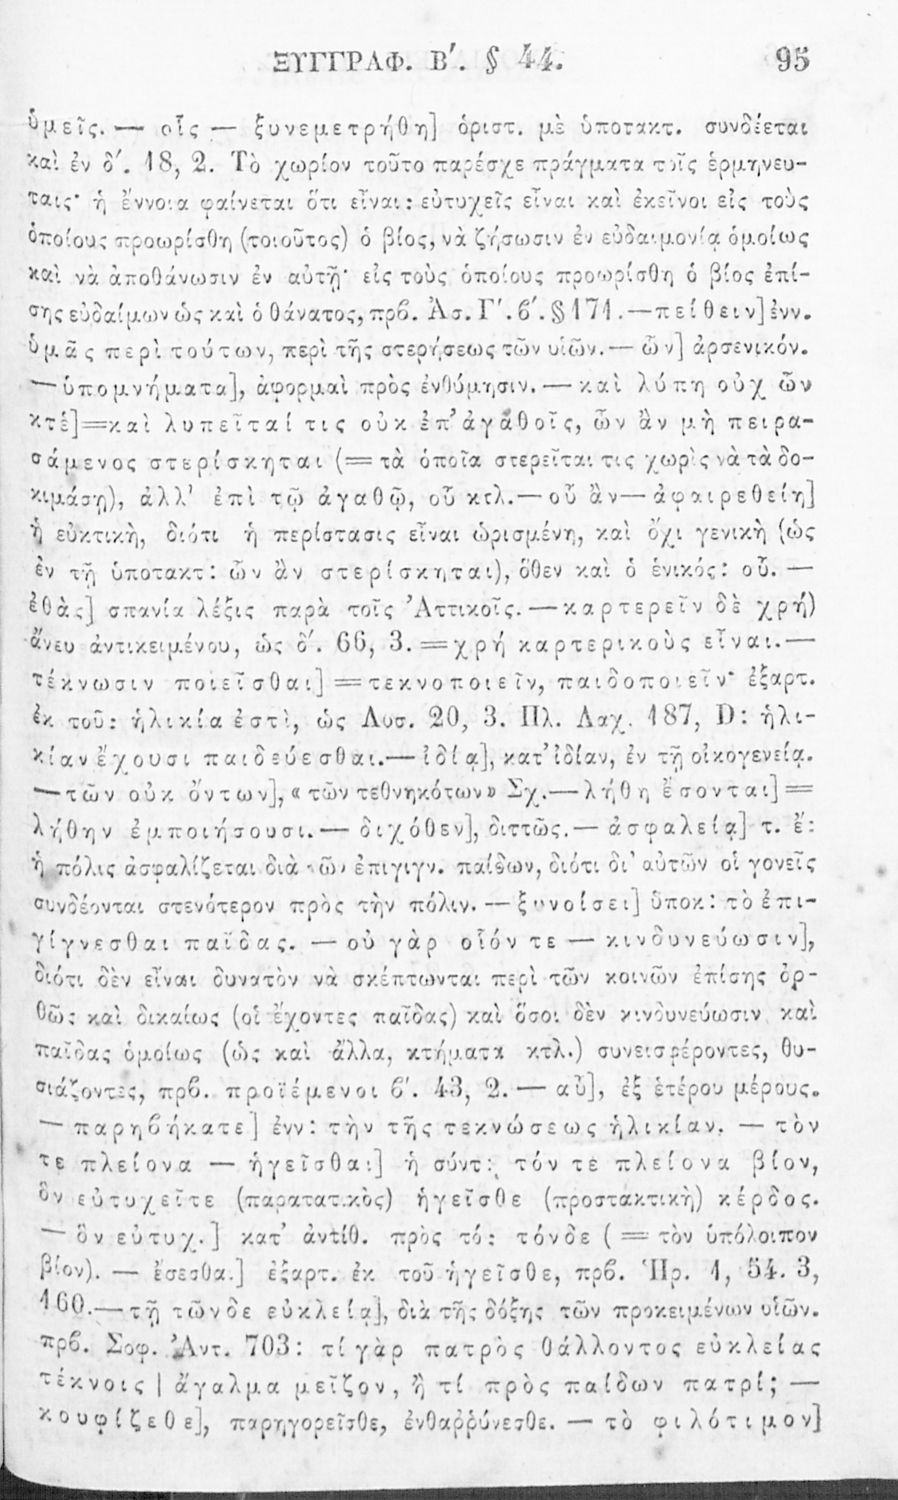 ΞΥΓΓΡΑΦ. Β΄. § 44. 95
ὑμεῖς. — οἷς — ξυνεμετρήθη] ὁριστ. μὲ ὑποτακτ. συνδέεται
καὶ ἐν δ΄. 18, 2. Τὸ χωρίον τοῦτο παρέσχε πράγματα τοῖς ἑρμηνευ-
ταῖς· ἡ ἔννοια φαίνεται ὅτι εἶναι: εὐτυχεῖς εἶναι καὶ ἐκεῖνοι εἰς τοὺς
ὁποίους προωρίσθη (τοιοῦτος) ὁ βίος, νὰ ζήσωσιν ἐν εὐδαιμονίᾳ ὁμοίως
καὶ νὰ ἀποθάνωσιν ἐν αὐτῇ· εἰς τοὺς ὁποίους προωρίσθη ὁ βίος ἐπί-
σης εὐδαίμων ὡς καὶ ὁ θάνατος, πρβ. Ἀσ. Γ΄. β΄. § 171. — πείθειν] ἐνν.
ὑμᾶς περὶ τούτων, περὶ τῆς στερήσεως τῶν υἱῶν. — ὧν] ἀρσενικόν.
— ὑπομνήματα], ἀφορμαὶ πρὸς ἐνθύμησιν. — καὶ λύπη οὐχ ὧν
κτἑ] = καὶ λυπεῖταί τις οὐκ ἐπ' ἀγαθοῖς, ὧν ἂν μὴ πειρα-
σάμενος στερίσκηται (= τὰ ὁποῖα στερεῖται τις χωρὶς νὰ τὰ δο-
κιμάσῃ), ἀλλ' ἐπὶ τῷ ἀγαθῷ, οὗ κτλ. — οὗ ἂν — ἀφαιρεθείη]
ἡ εὐκτικὴ, διότι ἡ περίστασις εἶναι ὡρισμένη, καὶ ὄχι γενικὴ (ὡς
ἐν τῇ ὑποτακτ: ὧν ἂν στερίσκηται), ὅθεν καὶ ὁ ἑνικός: οὗ. —
ἐθὰς] σπανία λέξις παρὰ τοῖς Ἀττικοῖς. — καρτερεῖν δὲ χρή)
ἄνευ ἀντικειμένου, ὡς δ΄. 66, 3. = χρή καρτερικοὺς εἶναι. —
τέκνωσιν ποιεῖσθαι] = τεκνοποιεῖν, παιδοποιεῖν· ἐξαρτ.
ἐκ τοῦ: ἡλικία ἐστὶ, ὡς Λυσ. 20, 3. Πλ. Λαχ. 187, D: ἡλι-
κίαν ἔχουσι παιδεύεσθαι. — ἰδίᾳ], κατ' ἰδίαν, ἐν τῇ οἰκογενείᾳ.
— τῶν οὐκ ὄντων], «τῶν τεθνηκότων» Σχ. — λήθη ἔσονται] =
λήθην ἐμποιήσουσι. — διχόθεν], διττῶς. — ἀσφαλείᾳ] τ. ἔ:
ἡ πόλις ἀσφαλίζεται διὰ τῶν ἐπιγιγν. παίδων, διότι δι' αὐτῶν οἱ γονεῖς
συνδέονται στενότερον πρὸς τὴν πόλιν. — ξυνοίσει] ὑποκ: τὸ ἐπι-
γίγνεσθαι παῖδας. — οὐ γὰρ οἷόν τε — κινδυνεύωσιν],
διότι δὲν εἶναι δυνατὸν νὰ σκέπτωνται περὶ τῶν κοινῶν ἐπίσης ὀρ-
θῶς καὶ δικαίως (οἱ ἔχοντες παῖδας) καὶ ὅσοι δὲν κινδυνεύωσιν καὶ
παῖδας ὁμοίως (ὡς καὶ ἄλλα, κτήματα κτλ.) συνεισφέροντες, θυ-
σιάζοντες, πρβ. προϊέμενοι β΄. 43, 2. — αὖ], ἐξ ἑτέρου μέρους.
— παρηβήκατε] ἐνν: τὴν τῆς τεκνώσεως ἡλικίαν. — τὸν
τε πλείονα — ἡγεῖσθαι] ἡ σύντ: τόν τε πλείονα βίον,
ὃν εὐτυχεῖτε (παρατατικὸς) ἡγεῖσθε (προστακτικὴ) κέρδος.
— ὃν εὐτυχ.] κατ' ἀντίθ. πρὸς τό: τόνδε (= τὸν ὑπόλοιπον
βίον). — ἔσεσθαι] ἐξαρτ. ἐκ τοῦ ἡγεῖσθε, πρβ. Ἡρ. 1, 54. 3,
160. — τῇ τῶνδε εὐκλείᾳ], διὰ τῆς δόξης τῶν προκειμένων υἱῶν.
πρβ. Σοφ. Ἀντ. 703: τί γὰρ πατρὸς θάλλοντος εὐκλείας
τέκνοις | ἄγαλμα μεῖζον, ἢ τί πρὸς παίδων πατρί; —
κουφίζεθε], παρηγορεῖσθε, ἐνθαῤῥύνεσθε. — τὸ φιλότιμον]